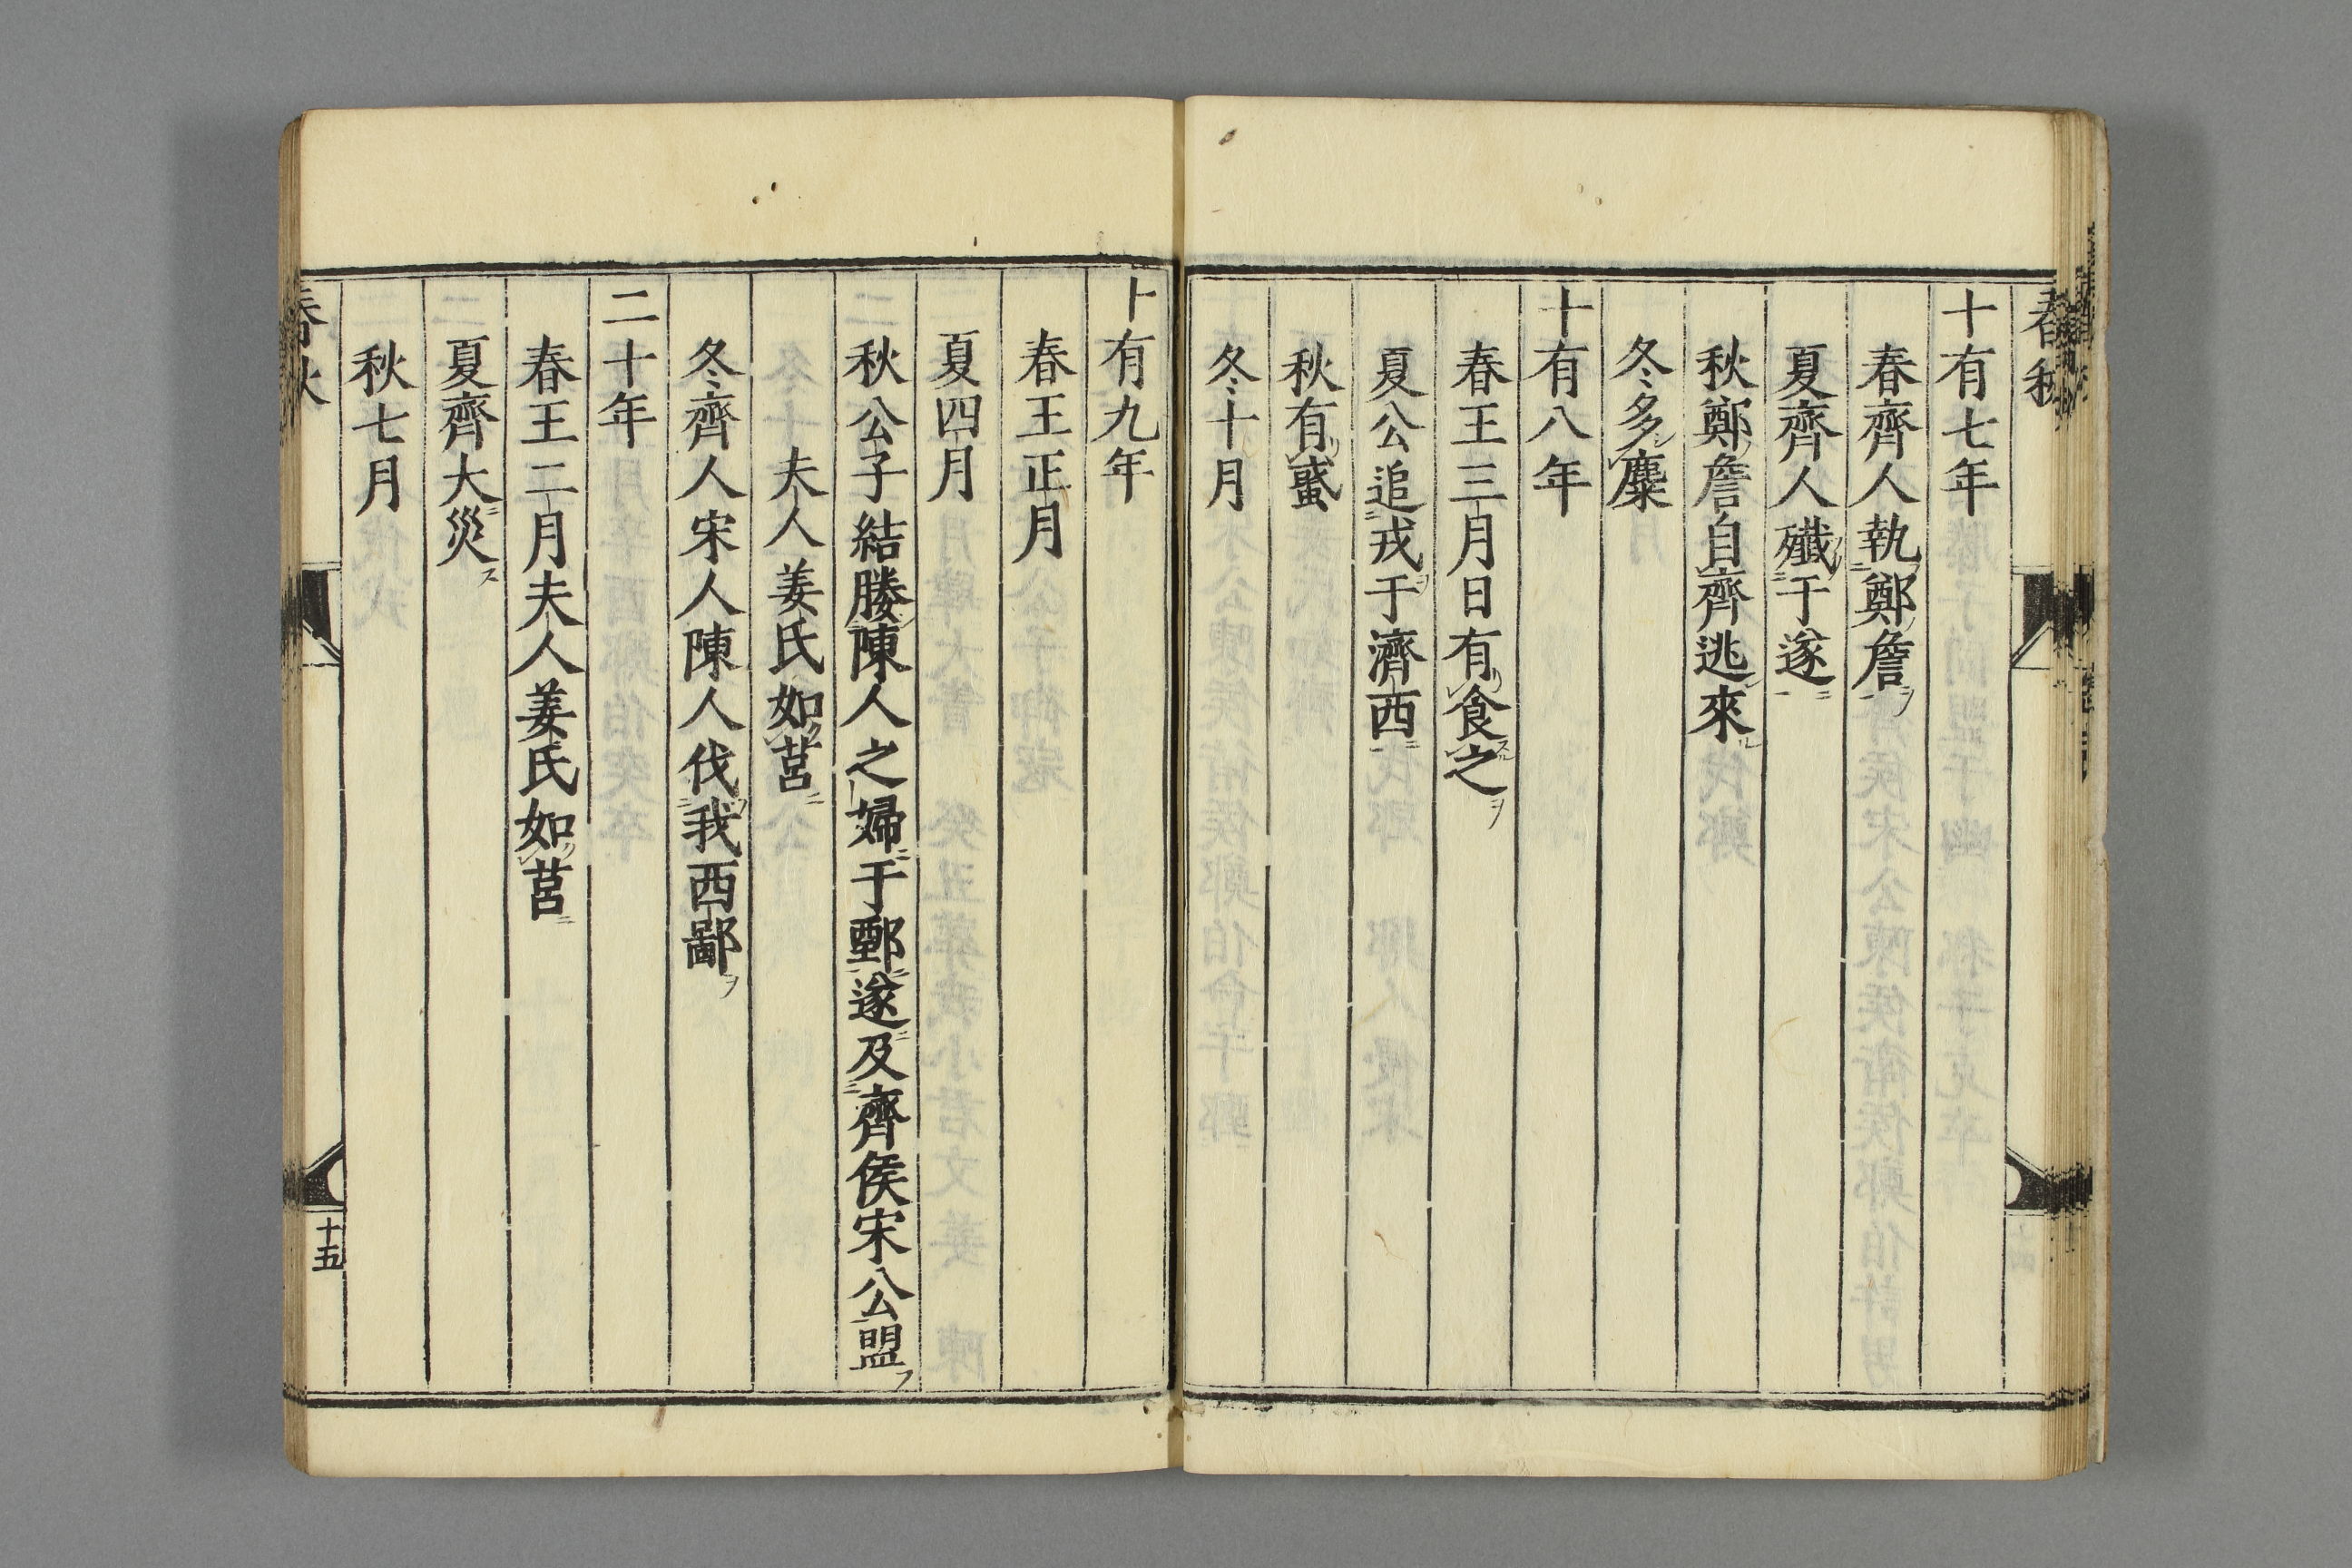 春秋
十有七年
春齊人執鄭詹
夏齊人殲于遂
秋鄭詹自齊逃來
冬多麋
十有八年
春王三月日有食之
夏公追戎于濟西
秋有蜮
冬十月
十有九年
春王正月
夏四月
秋公子結媵陳人之婦于鄄遂及齊侯宋公盟
夫人姜氏如莒
冬齊人宋人陳人伐我西鄙
二十年
春王二月夫人姜氏如莒
夏齊大災
秋七月
春秋
十五